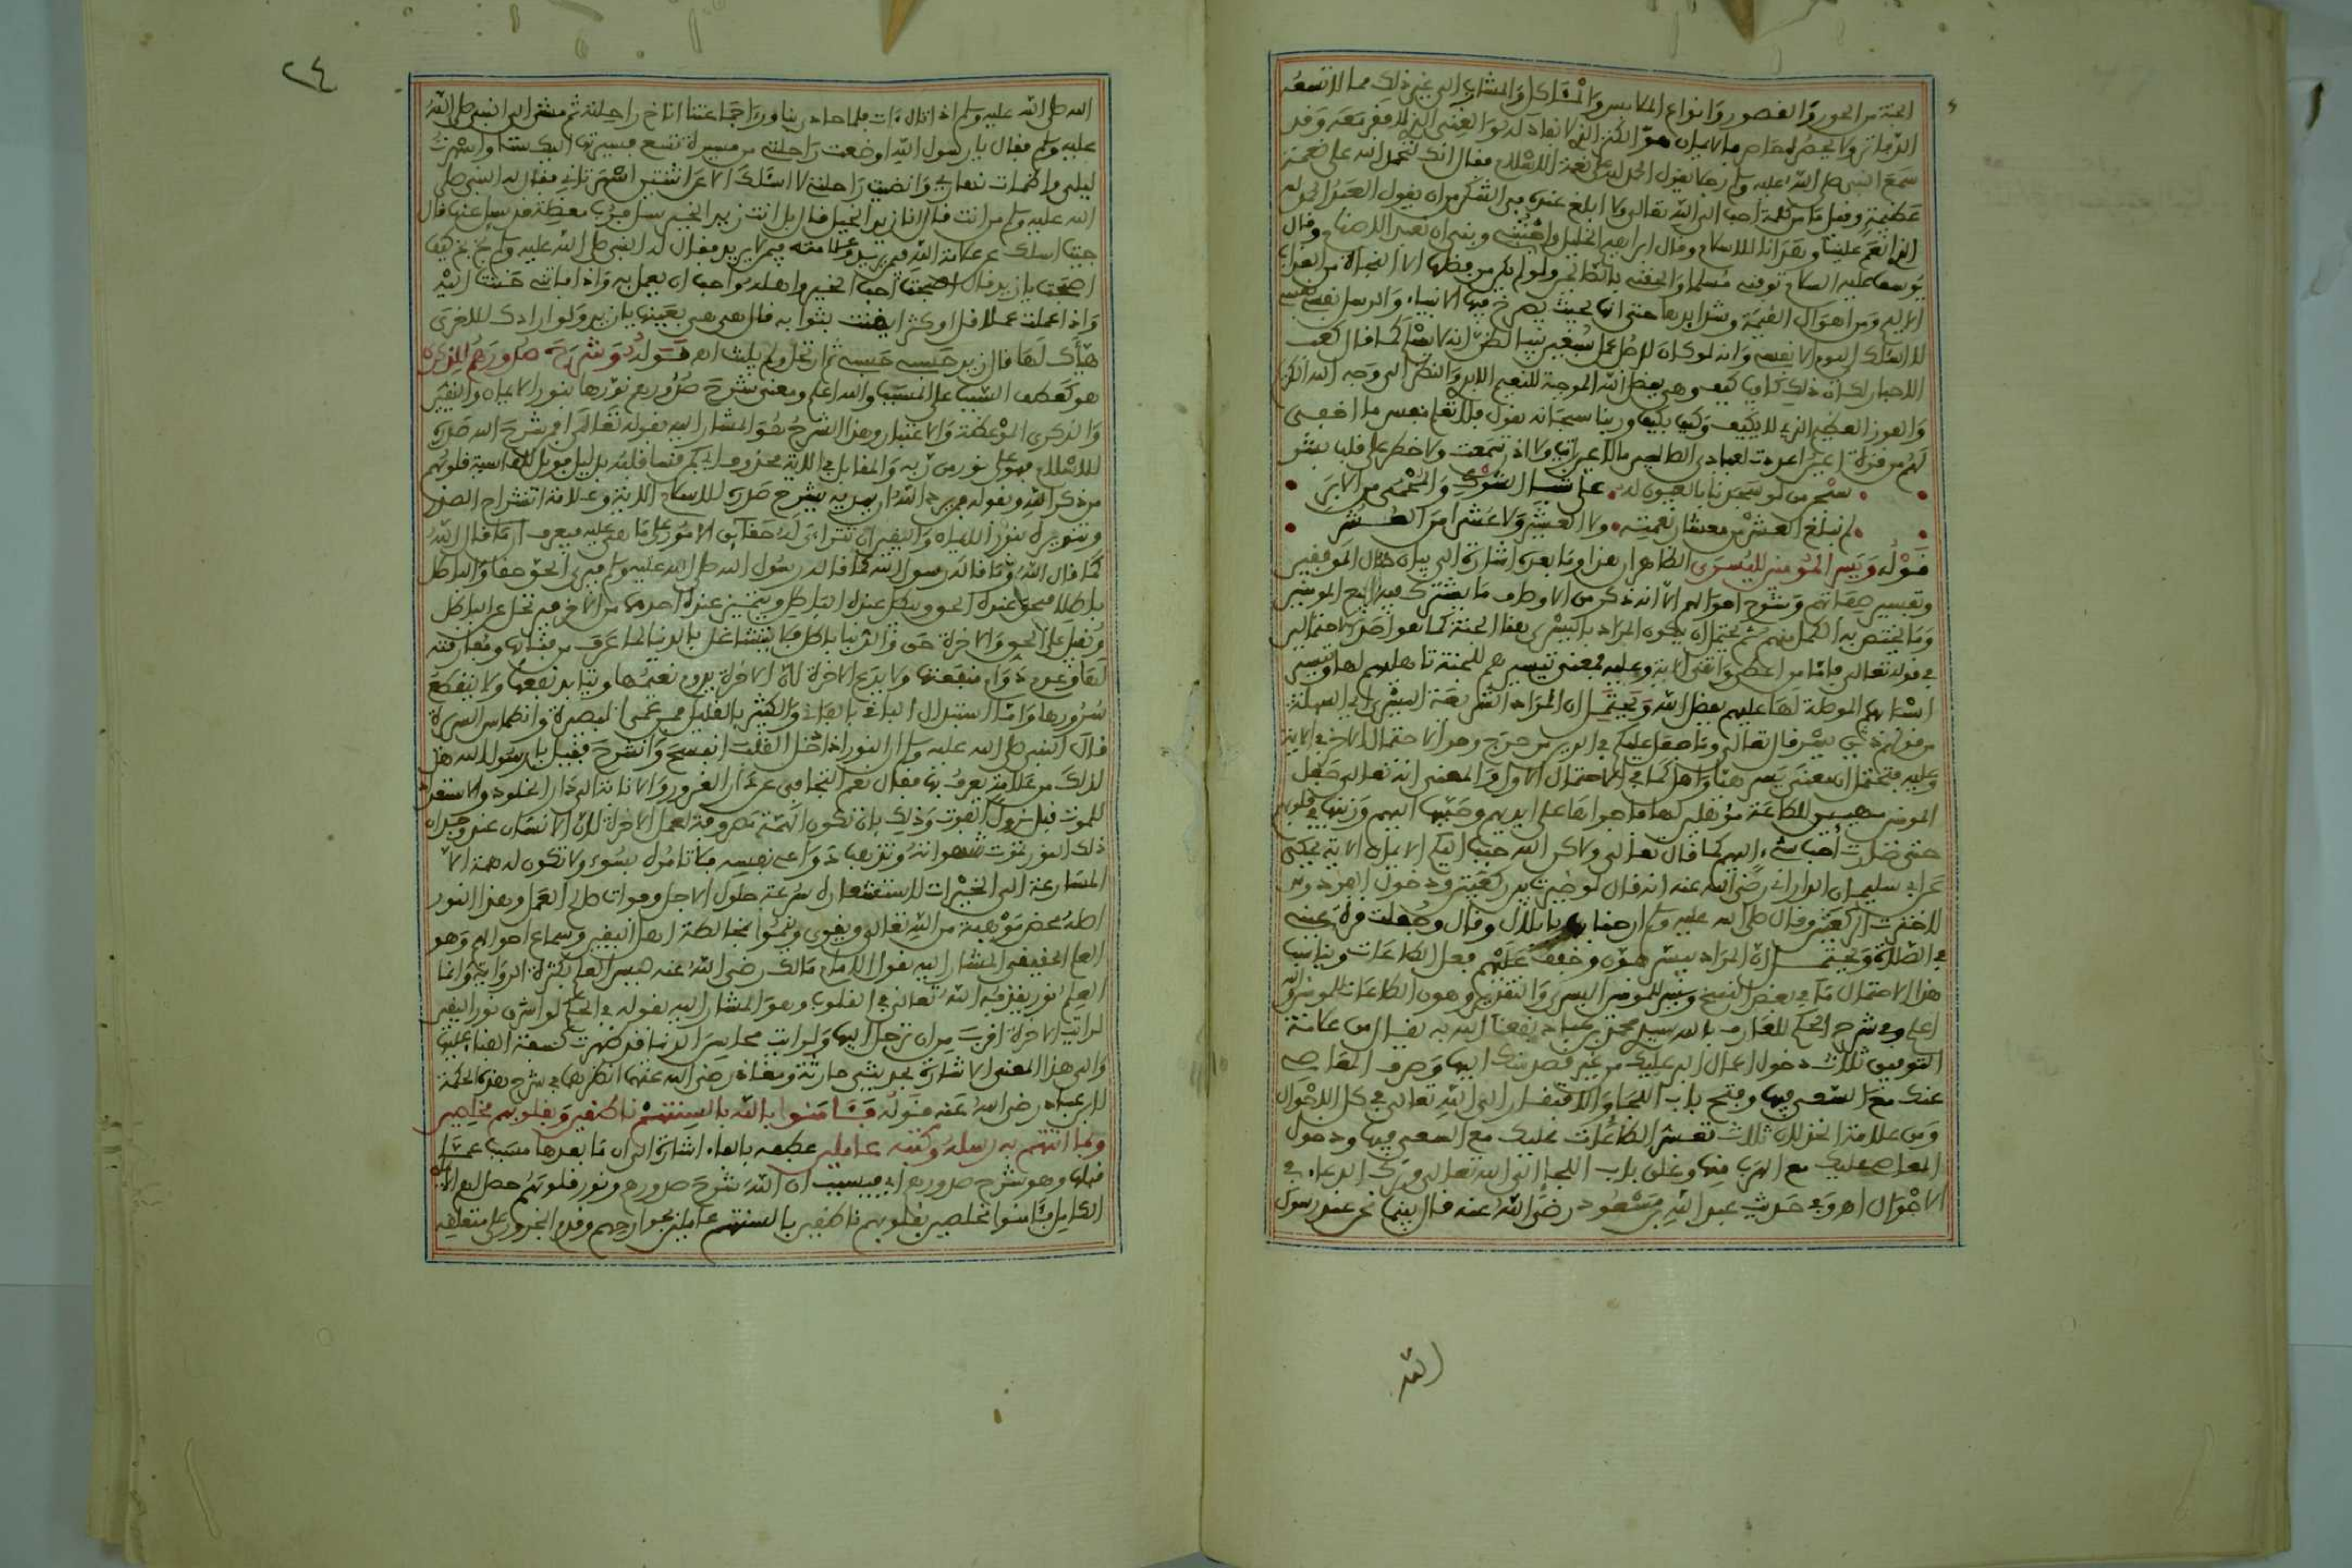 الجنة من الحور والقصور وانواع الملابس والمآكل والمشارب الى غير ذلك مما لا تسعه
سمع النبي صلى الله عليه وسلم رجلا يقول الحمد لله على نعمة الاسلام فقال انك لتحمد الله على نعمة
عظيمة وقيل ما من كلمة احب الى الله تعالى ولا ابلغ عنده في الشكر من ان يقول العبد الحمد لله
الذي انعم علينا وهدانا للاسلام وقال ابراهيم الخليل واجنبني وبني ان نعبد الاصنام وقال
يوسف عليه السلام توفني مسلما والحقني بالصالحين ولو لم يكن من فضلها الا النجاة من العذاب
الاليم ومن اهوال القيمة وشدايدها حتى انه بحيث يصرخ فيها الانبياء والرسل نفسي نفسي
لا اسئلك اليوم الا نفسي وانه لو كان لرجل عمل سبعين نبيا لظن انه لا ينجو كما قال كعب
والفوز العظيم الذي لا يكيف وكيف يكيف وربنا سبحانه يقول فلا تعلم نفس ما اخفي
لهم من قرة اعين اعددت لعبادي الصالحين ما لا عين رأت ولا اذن سمعت ولا خطر على قلب بشر
قوله ويسر المؤمنين لليسرى الظاهر ان هذا وما بعده اشارة الى بيان حال الموفقين
وما يختص به الكمل منهم ثم يحتمل ان يكون المراد باليسرى هنا الجنة كما هو احد الاحتمالين
في قوله تعالى فاما من اعطى واتقى الاية وعليه فمعنى تيسيرهم للجنة تاهيلهم لها وتيسير
اسبابها الموصلة لها عليهم بفضل الله ويحتمل ان المراد الشريعة اليسرى اي السهلة
من قولهم دين يسر قال تعالى وما جعل عليكم في الدين من حرج وهو الاحتمال الاخر في الاية
وعليه فيحتمل ان معنى يسر هيأ واهل كما في الاحتمال الاول والمعنى انه تعالى جعل
حتى صارت احب شيء اليهم كما قال تعالى ولاكن الله حبب اليكم الايمان الاية يحكى
عن ابي سليمان الداراني رضي الله عنه انه قال لو خيرت بين ركعتين ودخول الفردوس
لاخترت الركعتين وقال صلى الله عليه وسلم ارحنا بها يا بلال وقال وجعلت قرة عيني
في الصلاة ويحتمل ان المراد بيسر هون وخفف عليهم فعل الطاعات ويناسب
هذا الاحتمال ما في بعض النسخ ويسر للمؤمنين اليسرى والتقدير وهون الطاعات للمؤمنين والله
اعلم وفي شرح الحكم للعارف بالله سيدي محمد بن عباد نفعنا الله به يقال من علامة
التوفيق ثلاث دخول اعمال البر عليك من غير قصد منك اليها وصرف المعاصي
عنك مع السعي فيها وفتح باب اللجا والافتقار الى الله تعالى في كل الاحوال
ومن علامة الخذلان ثلاث تعسر الطاعات عليك مع السعي فيها ودخول
المعاصي عليك مع الهرب منها وغلق باب اللجا الى الله تعالى وترك الدعاء في
الاحوال اهـ وفي حديث عبد الله بن مسعود رضي الله عنه قال بينما نحن عند رسول
الله
٢٤
الله صلى الله عليه وسلم اذ اقبل راكب فلما حاذانا ورأى جماعتنا اناخ راحلته ثم مشى الى النبي صلى الله
عليه وسلم فقال يا رسول الله اوضعت راحلتي من مسيرة تسع فسيرتها اليك ستا واسهرت
ليلي واظمأت نهاري وانضيت راحلتي لاسئلك عن اثنتين اسهرتاني فقال له النبي صلى
الله عليه وسلم من انت قال انا زيد الخيل قال بل انت زيد الخير سل فرب معضلة قد سئل عنها قال
جئت اسئلك عن علامة الله فيمن يريد وعلامته فيمن لا يريد فقال له النبي صلى الله عليه وسلم بخ بخ كيف
اصبحت يا زيد قال اصبحت احب الخير واهله واحب ان يعمل به واذا فاتني حننت اليه
واذا عملت عملا قل او كثر ايقنت بثوابه قال هي هي بعينها يا زيد ولو ارادك للاخرى
هيأك لها قال زيد حسبي حسبي ثم ارتحل ولم يلبث اهـ قوله وشرح صدورهم للذكرى
هو كعطف السبب على المسبب والله اعلم ومعنى شرح صدورهم نورها بنور الايمان واليقين
والذكرى الموعظة والاعتبار وهذا الشرح هو المشار اليه بقوله تعالى افمن شرح الله صدره
للاسلام فهو على نور من ربه والمقابل في الاية محذوف اي كمن قسا قلبه بدليل فويل للقاسية قلوبهم
من ذكر الله وبقوله فمن يرد الله ان يهديه يشرح صدره للاسلام الاية وعلامة انشراح الصدر
كما قال الله وما قاله رسول الله كما قاله رسول الله صلى الله عليه وسلم فيرى الحق حقا والباطل
باطلا فيحق عنده الحق ويبطل عنده الباطل ويتميز عنده احدهما من الاخر فيدخل عن الباطل
ويقبل على الحق والاخرة حق والدنيا باطل فلا يتشاغل بالدنيا لما عرف من فنائها ومفارقته
لها وعدم دوام منفعتها ولا يدع الاخرة لان الاخرة يدوم نعيمها ويتابد نفعها ولا ينقطع
سرورها وانما استبدال الباقي بالفاني والكثير بالقليل من عمى البصيرة وانطماس السريرة
قال النبي صلى الله عليه وسلم ان النور اذا دخل القلب انفسح وانشرح فقيل يا رسول الله هل
لذلك من علامة يعرف بها فقال نعم التجافي عن دار الغرور والانابة الى دار الخلود والاستعداد
للموت قبل نزول الموت وذلك بان تكون الهمة مصروفة لعمل الاخرة لان الانسان عند وجدان
ذلك النور تموت شهواته وتذهب دواعي نفسه فلا تامره بسوء ولا تكون له همة الا
المسارعة الى الخيرات لاستشعاره سرعة حلول الاجل وفوات صالح العمل وهذا النور
اصله محض موهبة من الله تعالى ويقوى وينمو بمخالطة اهل اليقين وسماع احوالهم وهو
العلم الحقيقي المشار اليه بقول الامام مالك رضي الله عنه ليس العلم بكثرة الرواية وانما
العلم نور يقذفه الله تعالى في القلوب وهو المشار اليه بقوله في الحكم لو اشرق نور اليقين
لرايت الاخرة اقرب من ان ترحل اليها ولرايت محاسن الدنيا قد ظهرت كسفة الفناء عليها
والى هذا المعنى الاشارة بحديثي حارثة ومعاذ رضي الله عنهما انظرهما في شرح هذه الحكمة
لابن عباد رضي الله عنه قوله فآمنوا بالله بالسنتهم ناطقين وبقلوبهم مخلصين
وبما اتتهم به رسله وكتبه عاملين عطفه بالفاء اشارة الى ان ما بعدها مسبب عما
قبلها وهو شرح صدورهم اي فبسبب ان الله شرح صدورهم ونور قلوبهم حصل لهم الايمان
الكامل فآمنوا مخلصين بقلوبهم ناطقين بالسنتهم عاملين بجوارحهم وقدم المجرور على متعلقه